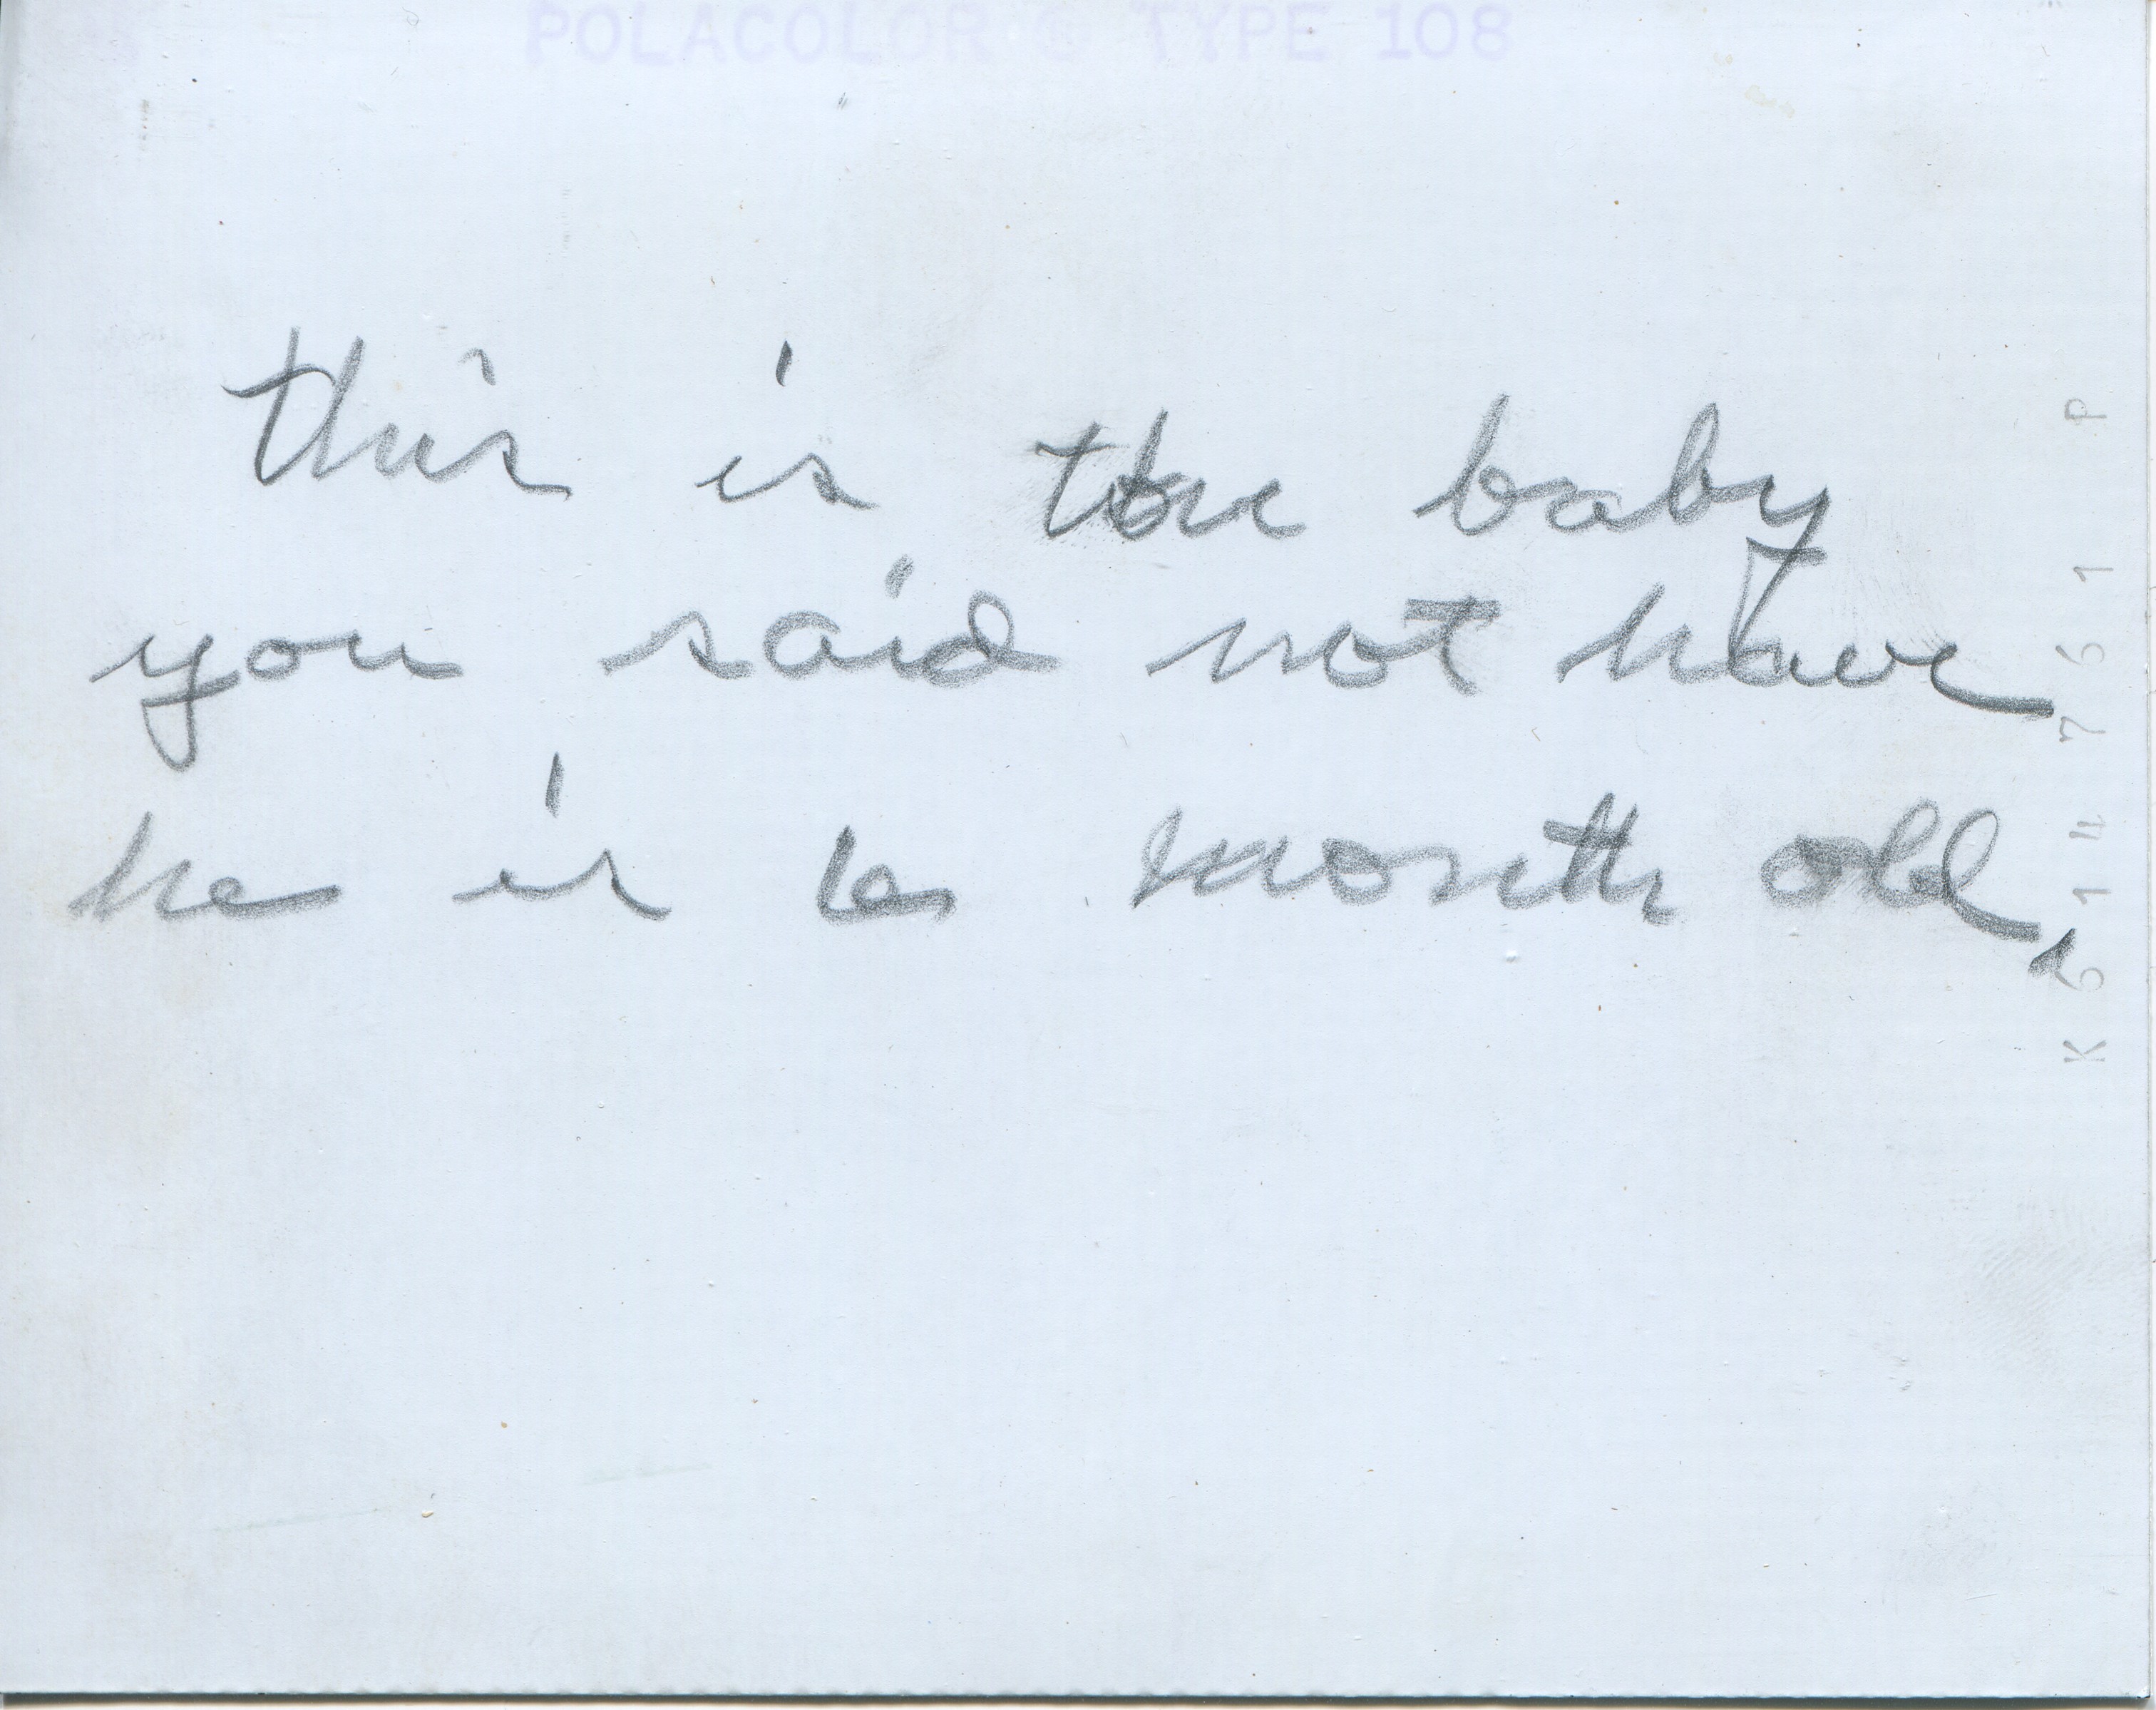 POLACOLOR TYPE 108
this is the baby
you said not have
he is month old,
K6147761 P